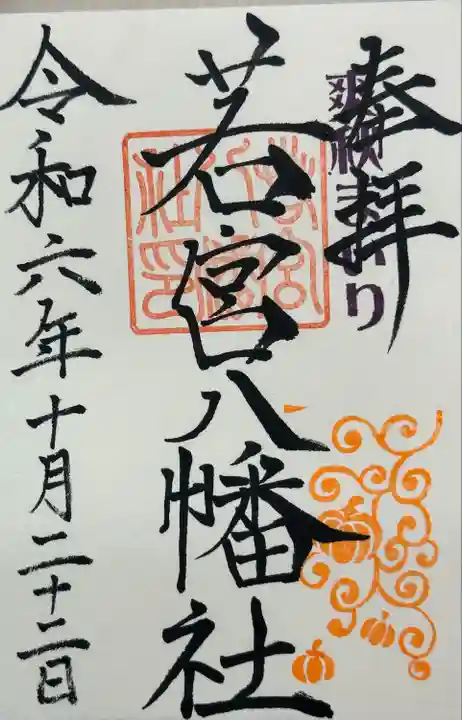 奉拝
若宮八幡社
令和六年十月二十二日